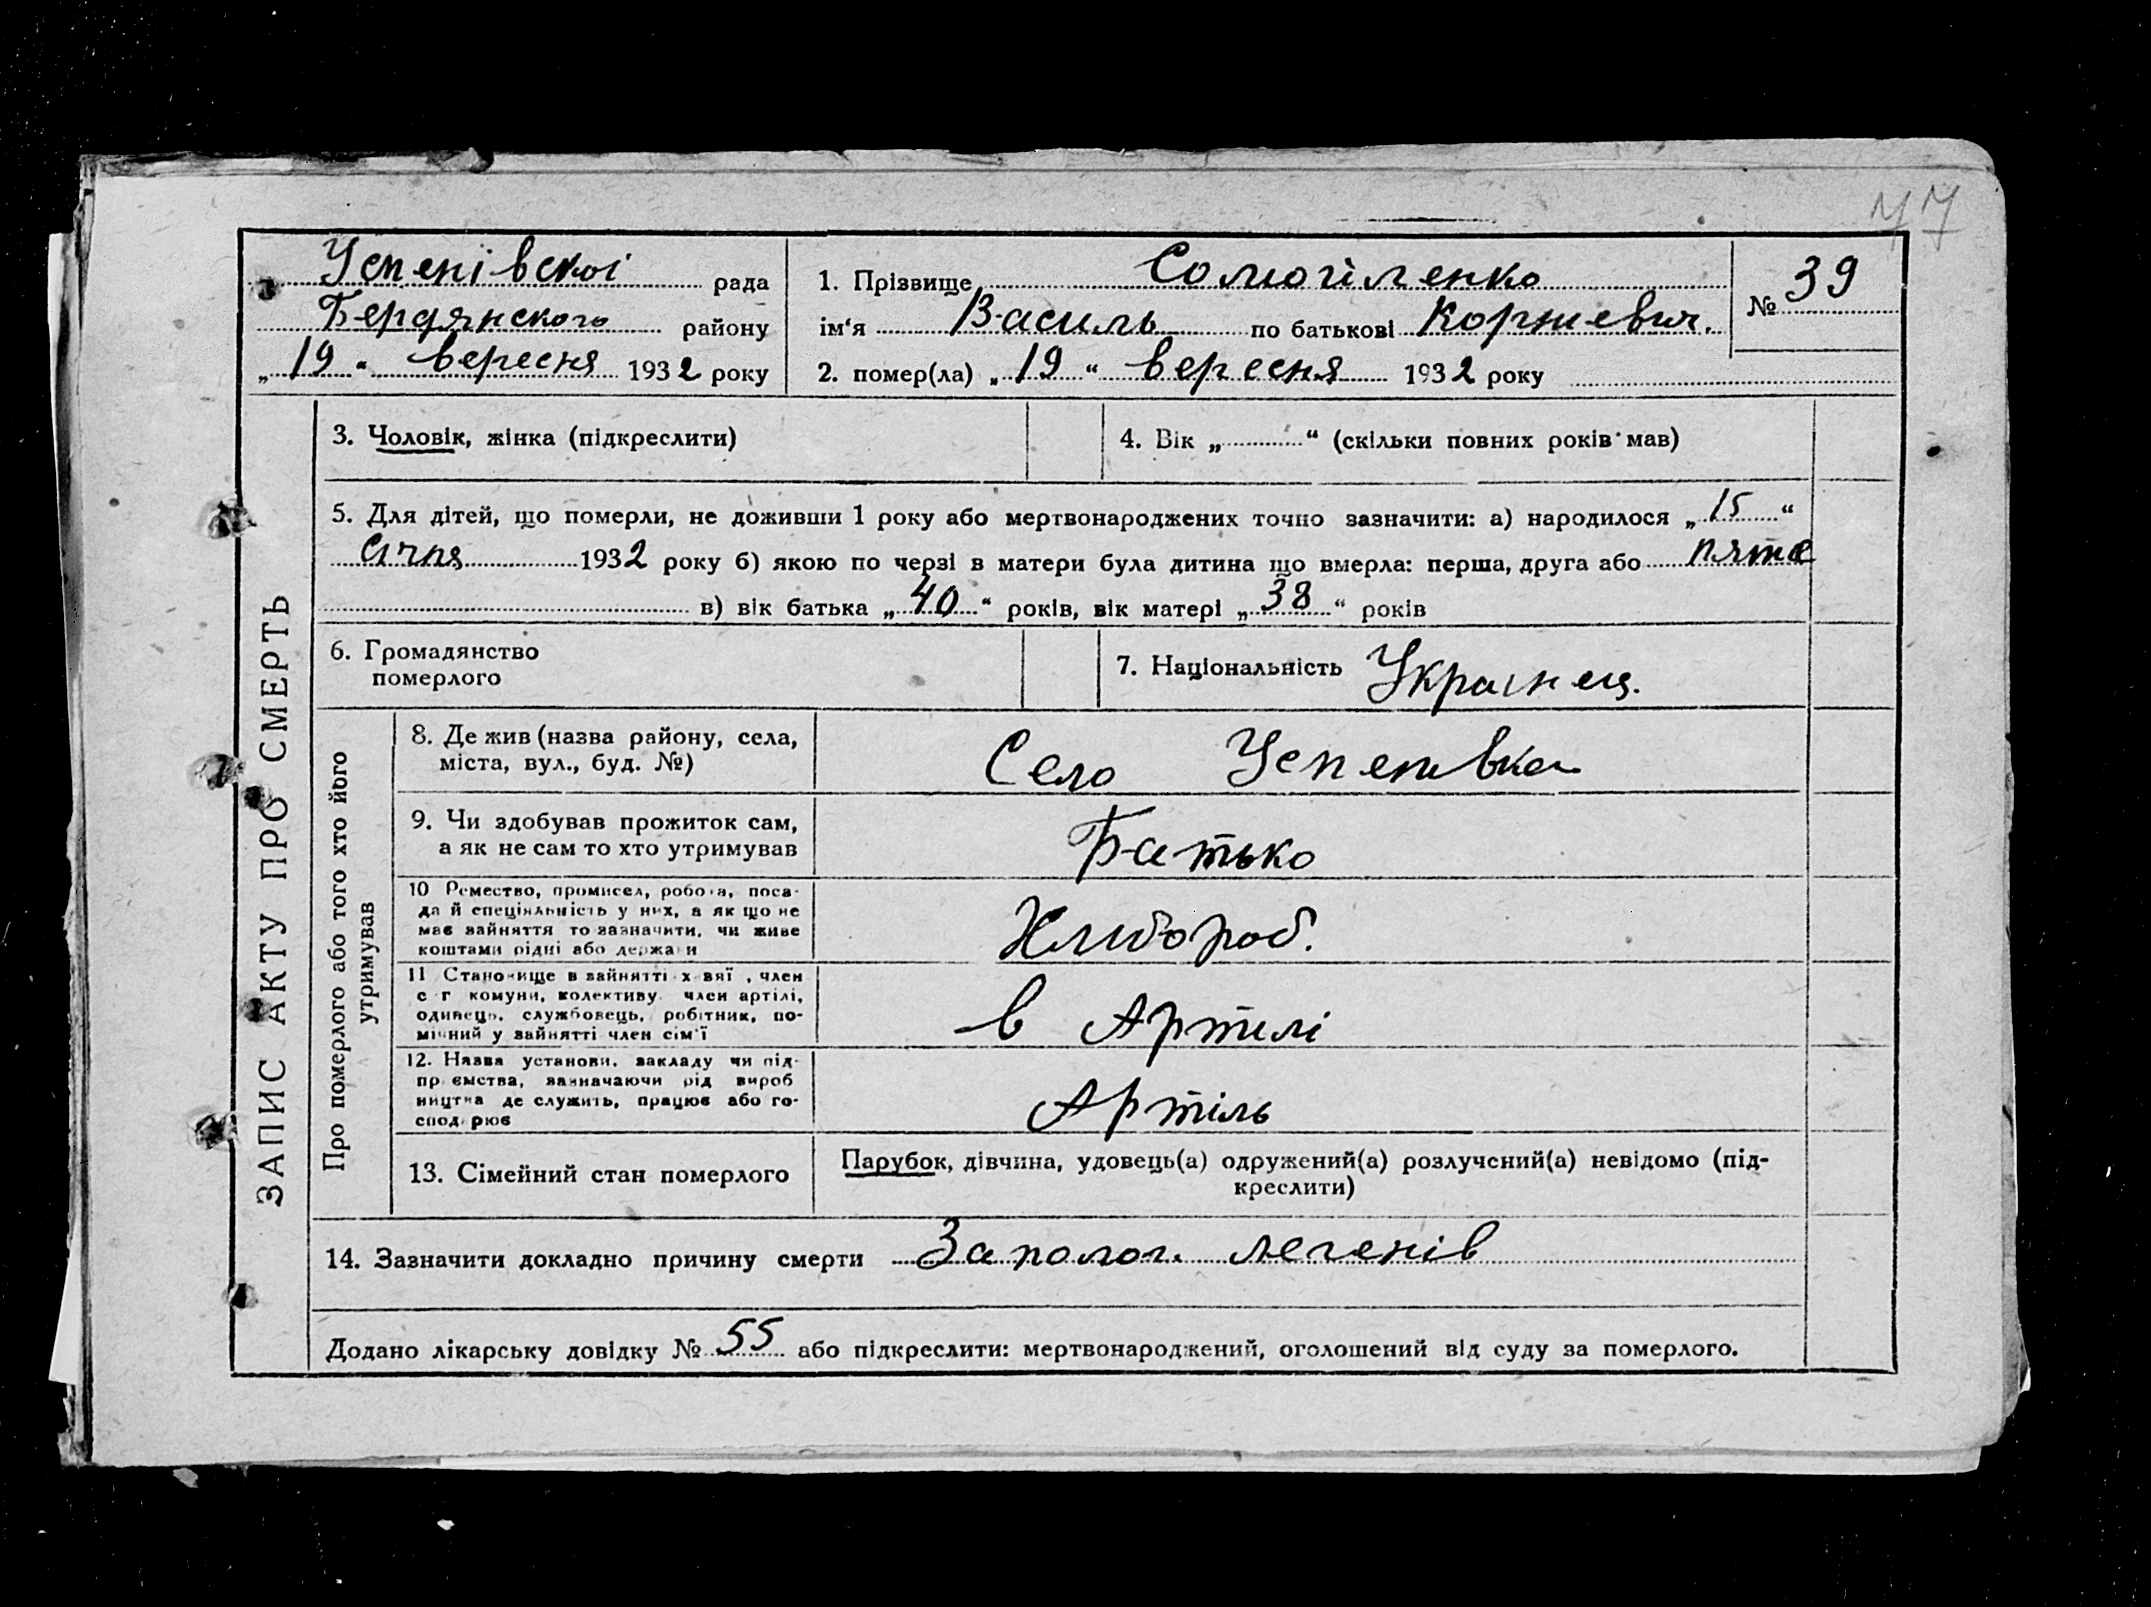 77
Успенівської рада
Бердянського району
„19“ вересня 1932 року
1. Прізвище Сомогіленко
ім‘я Василь по батькові Корниевич.
2. помер(ла) „19“ вересня 1932 року
№ 39
ЗАПИС АКТУ ПРО СМЕРТЬ
3. Чоловік, жінка (підкреслити)
4. Вік „ “ (скільки повних років мав)
5. Для дітей, що померли, не доживши 1 року або мертвонароджених точно зазначити: а) народилося „15“
січня 1932 року б) якою по черзі в матери була дитина що вмерла: перша, друга або пяте
в) вік батька „40“ років, вік матері „38“ років
6. Громадянство
померлого
7. Національність Украінец.
Про померлого або того хто його
утримував
8. Де жив (назва району, села,
міста, вул., буд. №)
Село Успенівка
9. Чи здобував прожиток сам,
а як не сам то хто утримував
Батько
10 Ремество, промисел, робота, поса-
да й спеціяльність у них, а як що не
має зайняття то зазначити, чи живе
коштами рідні або держави
Хлибороб.
11 Становище в зайнятті х вяї , член
с г комуни, колективу член артілі,
одинець, службовець, робітник, по-
мічний у зайнятті член сім'ї
в Артилі
12. Назва установи, закладу чи під-
приємства, зазначаючи рід вироб
ництва де служить, працює або го-
сподарює
Артіль
13. Сімейний стан померлого
Парубок, дівчина, удовець(а) одружений(а) розлучений(а) невідомо (під-
креслити)
14. Зазначити докладно причину смерти Заполог. легенів
Додано лікарську довідку № 55 або підкреслити: мертвонароджений, оголошений від суду за померлого.